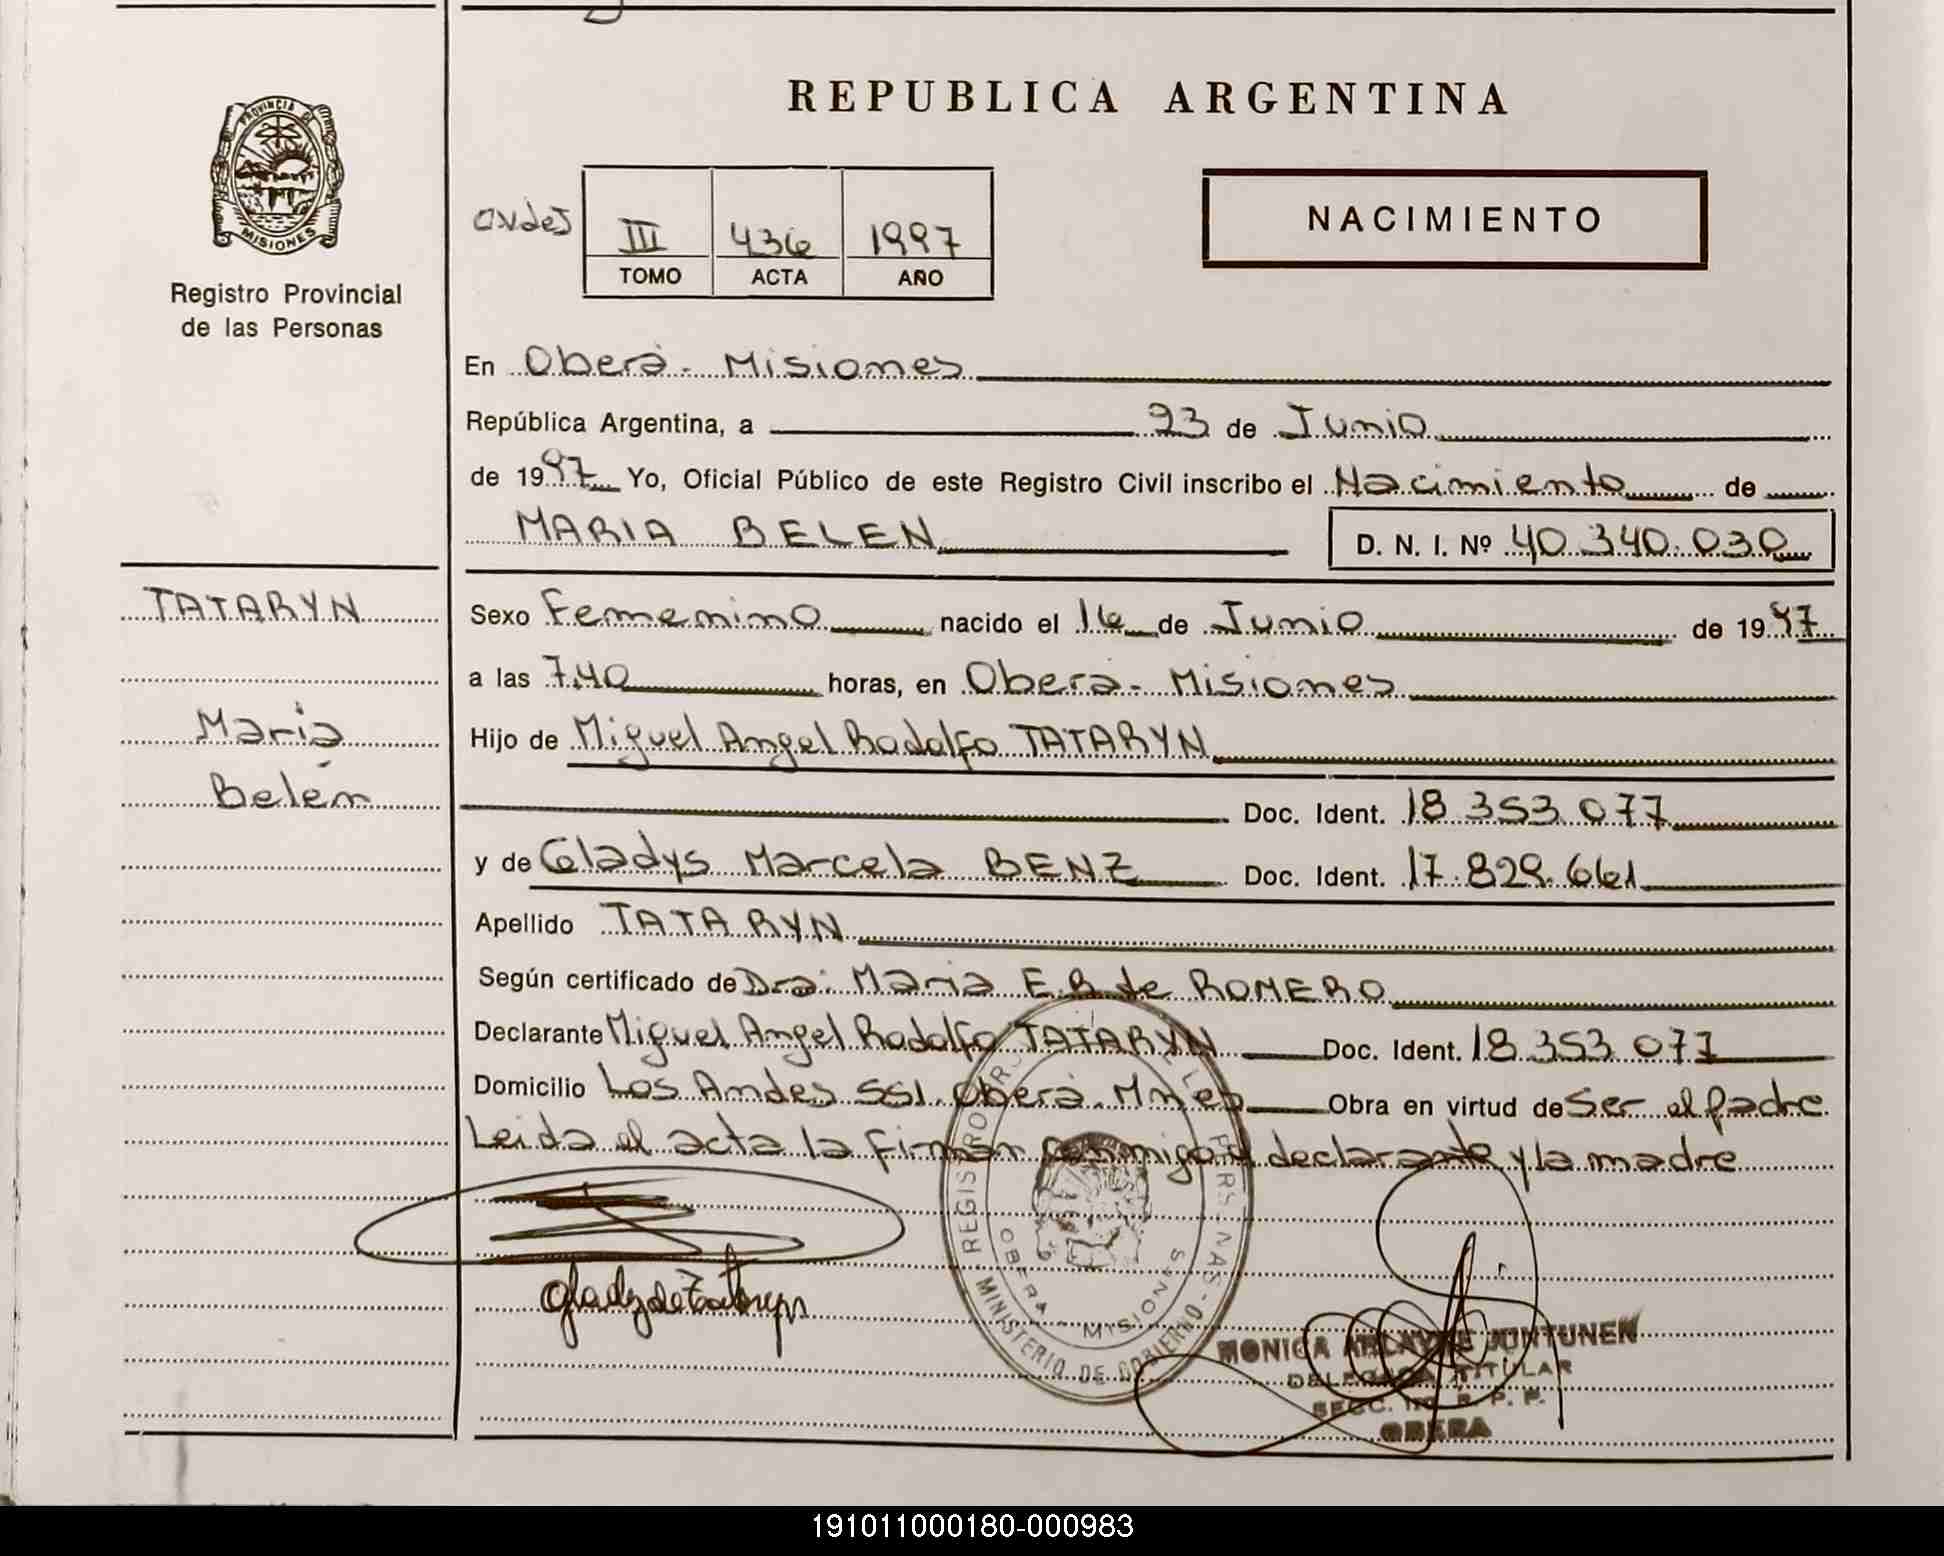 REPUBLICA ARGENTINA
PROVINCIA DE
MISIONES
Registro Provincial
de las Personas
III 436 1997
TOMO ACTA AÑO
NACIMIENTO
En Oberá - Misiones
República Argentina, a 23 de Junio
de 1997 Yo, Oficial Público de este Registro Civil inscribo el Nacimiento de
MARIA BELEN D. N. I. Nº 40.340.030
TATARYN
Maria
Belén
Sexo Femenino nacido el 16 de Junio de 1997
a las 7,40 horas, en Oberá - Misiones
Hijo de Miguel Angel Rodolfo TATARYN
Doc. Ident. 18.353.077
y de Gladys Marcela BENZ Doc. Ident. 17.829.661
Apellido TATARYN
Según certificado de Dra. Maria E. B de ROMERO
Declarante Miguel Angel Rodolfo TATARYN Doc. Ident. 18.353.077
Domicilio Los Andes 551. Oberá. Mnes Obra en virtud de Ser el padre
Leida el acta la firman conmigo el declarante y la madre
REGISTRO
OBERA - MISIONES
MINISTERIO DE GOBIERNO
MONICA JUNTUNEN
DELEGADA TITULAR
SECC. R. P. P.
OBERA
191011000180-000983